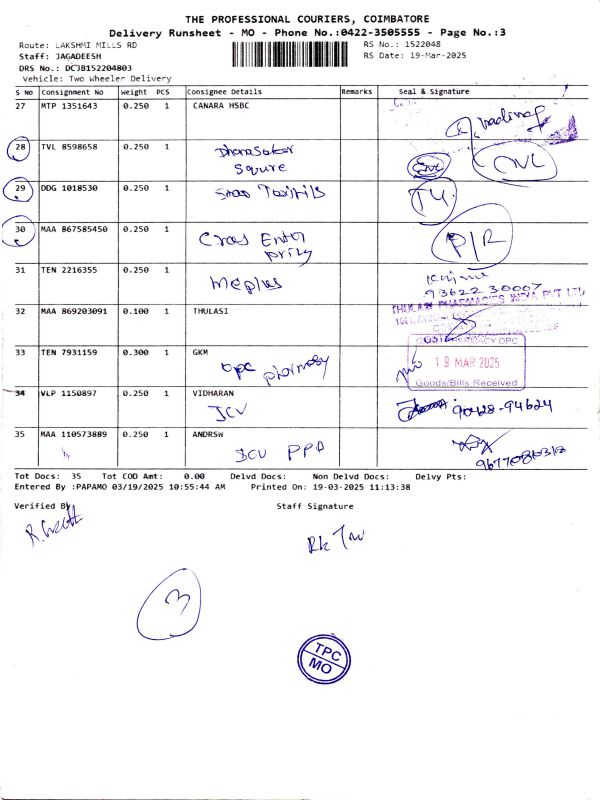 THE PROFESSIONAL COURIERS, COIMBATORE
Delivery Runsheet - MO - Phone No.:0422-3505555 - Page No.:3
Route: LAKSHMI MILLS RD
RS No.: 1522048
Staff: JAGADEESH
RS Date: 19-Mar-2025
DRS No.: DCJB152204803
Vehicle: Two Wheeler Delivery
S NO Consignment No Weight PCS Consignee Details Remarks Seal & Signature
27 MTP 1351643 0.250 1 CANARA HSBC
28 TVL 8598658 0.250 1
Squre
CNL
29 DDG 1018530 0.250 1
30 MAA 867585450 0.250 1 Cros Enter
P/R
31 TEN 2216355 0.250 1 Meplus
93622 30007
32 MAA 869203091 0.100 1 THULASI
33 TEN 7931159 0.300 1 GKM
opc pharmasy
19 MAR 2025
Goods/Bills Received
34 VLP 1150897 0.250 1 VIDHARAN
JCV
90428-94624
35 MAA 110573889 0.250 1 ANDRSW
JCV PPD
Tot Docs: 35 Tot COD Amt: 0.00 Delvd Docs: Non Delvd Docs: Delvy Pts:
Entered By :PAPAMO 03/19/2025 10:55:44 AM Printed On: 19-03-2025 11:13:38
Verified By
Staff Signature
3
TPC
MO